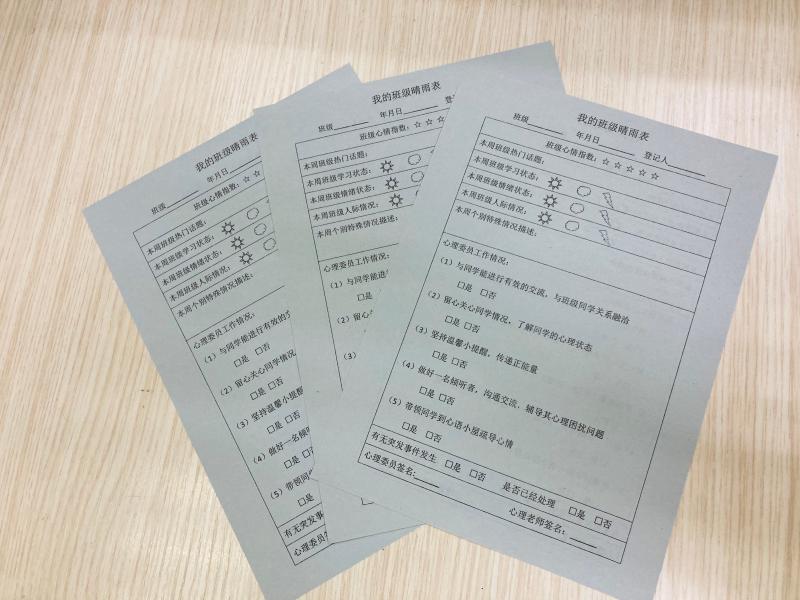 我的班级晴雨表
班级 年月日
班级心情指数：☆
本周班级热门话题：
本周班级学习状态：
本周班级情绪状态：
本周班级人际情况：
本周个别特殊情况描述：
心理委员工作情况：
（1）与同学能进行有效的
□是 □否
（2）留心关心同学情况
□是 □否
（3）坚持温馨小提醒
□是 □否
（4）做好一名倾
□是 □否
（5）带领同
□是
有无突发事
心理委员
我的班级晴雨表
班级 年月日 登
班级心情指数：☆ ☆ ☆
本周班级热门话题：
本周班级学习状态：
本周班级情绪状态：
本周班级人际情况：
本周个别特殊情况描述：
心理委员工作情况：
（1）与同学能进
□是
（2）留心
（3）
我的班级晴雨表
班级 年月日 登记人
班级心情指数：☆ ☆ ☆ ☆ ☆
本周班级热门话题：
本周班级学习状态：
本周班级情绪状态：
本周班级人际情况：
本周个别特殊情况描述：
心理委员工作情况：
（1）与同学能进行有效的交流，与班级同学关系融洽
□是 □否
（2）留心关心同学情况，了解同学的心理状态
□是 □否
（3）坚持温馨小提醒，传递正能量
□是 □否
（4）做好一名倾听者，沟通交流，辅导其心理困扰问题
□是 □否
（5）带领同学到心语小屋疏导心情
□是 □否
有无突发事件发生 □是 □否 是否已经处理 □是 □否
心理委员签名： 心理老师签名：